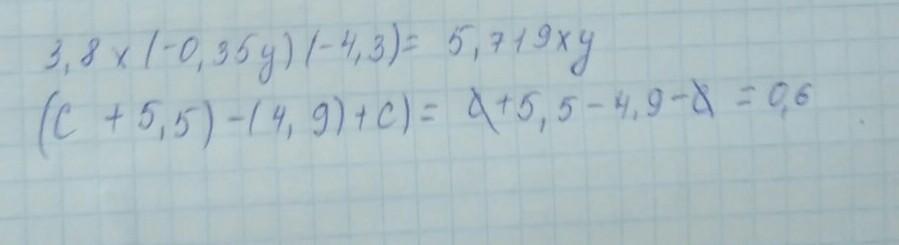 3,8x(-0,35y)(-4,3)= 5,719xy
(c +5,5)-(4,9)+c)= c+5,5-4,9-c =0,6